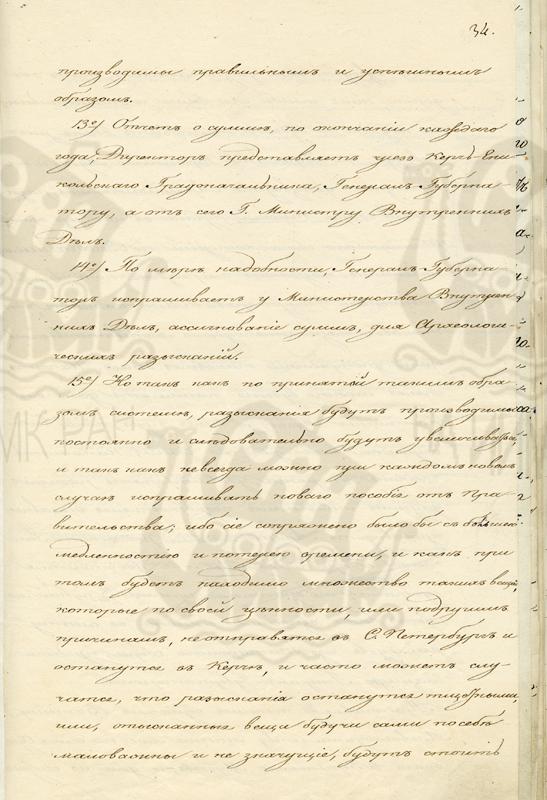 34.
производимы правильнымъ и успѣшнымъ
образомъ.
13е/ Отчетъ о суммѣ, по окончаніи каждаго
года, Директоръ представляетъ чрезъ Керчь-Ени-
кольскаго Градоначальника, Генералъ Губерна-
тору, а отъ сего Г. Министру Внутреннихъ
Дѣлъ.
14е/ По мѣрѣ надобности, Генералъ Губерна-
торъ испрашиваетъ у Министерства Внутрен-
нихъ Дѣлъ, ассигнованіе суммъ, для Археологи-
ческихъ разысканій.
15е/ Но такъ какъ по принятой такимъ обра-
зомъ системѣ, разысканія будутъ производимы
постоянно и слѣдовательно будутъ увеличиваться,
и такъ какъ невсегда можно при каждомъ новомъ
случаѣ испрашивать новаго пособія отъ Пра-
вительства; ибо сіе сопряжено было бы съ большею
медленностію и потерею времени, и какъ при
томъ будетъ находимо множество такихъ вещей,
которые по своей цѣнности, или подругимъ
причинамъ, не отправятся въ С. Петербургъ и
останутся въ Керчѣ, и часто можетъ слу-
чатся, что разысканія останутся тщетными,
или, отысканныя вещи будучи сами по себѣ
маловажны и не значущіе, будутъ стоить